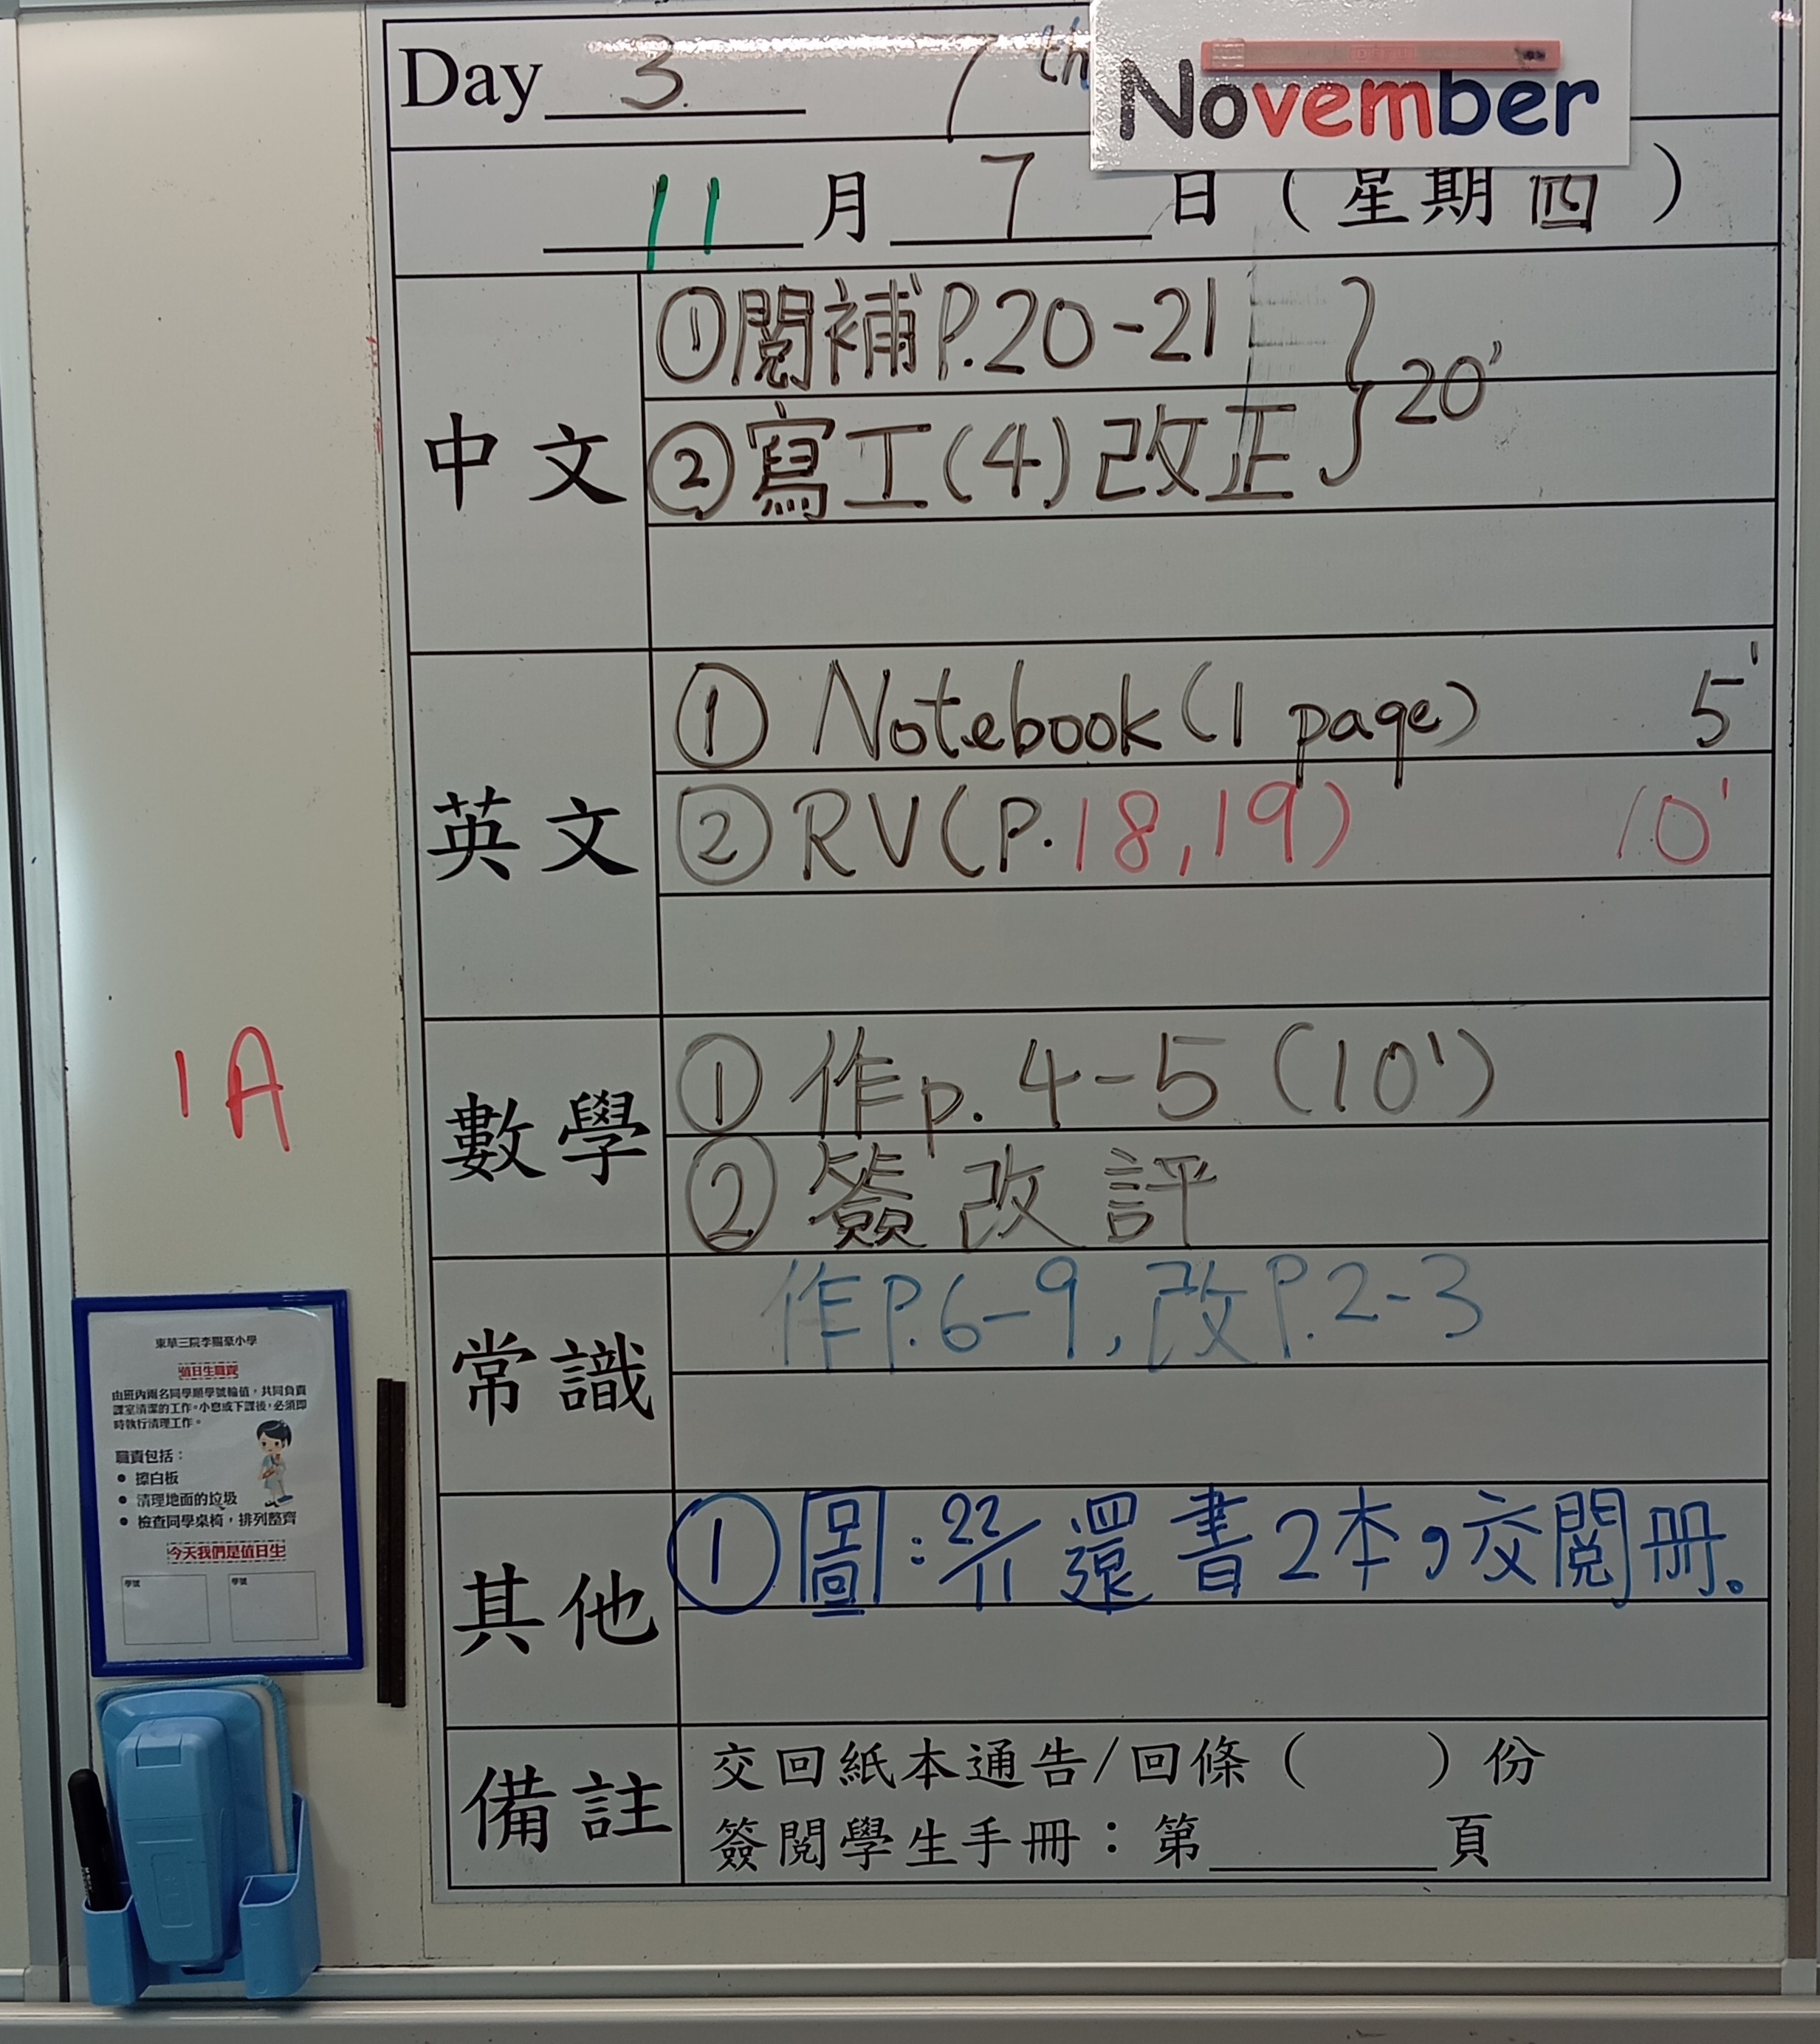 Day 3 7th November
11月7日(星期四)
中文
①閱補P.20-21
②寫工(4)改正
} 20'
英文
① Notebook(1 page) 5'
② RV(P.18,19) 10'
數學
① 作p.4-5 (10')
② 簽改評
常識
作P.6-9,改P.2-3
其他
①圖:22/11還書2本,交閱冊。
備註
交回紙本通告/回條( )份
簽閱學生手冊:第____頁
1A
東華三院李賜豪小學
值日生職責
由班內兩名同學順學號輪值,共同負責
課室清潔的工作。小息或下課後,必須即
時執行清理工作。
職責包括:
• 擦白板
• 清理地面的垃圾
• 檢查同學桌椅,排列整齊
今天我們是值日生
學號 學號